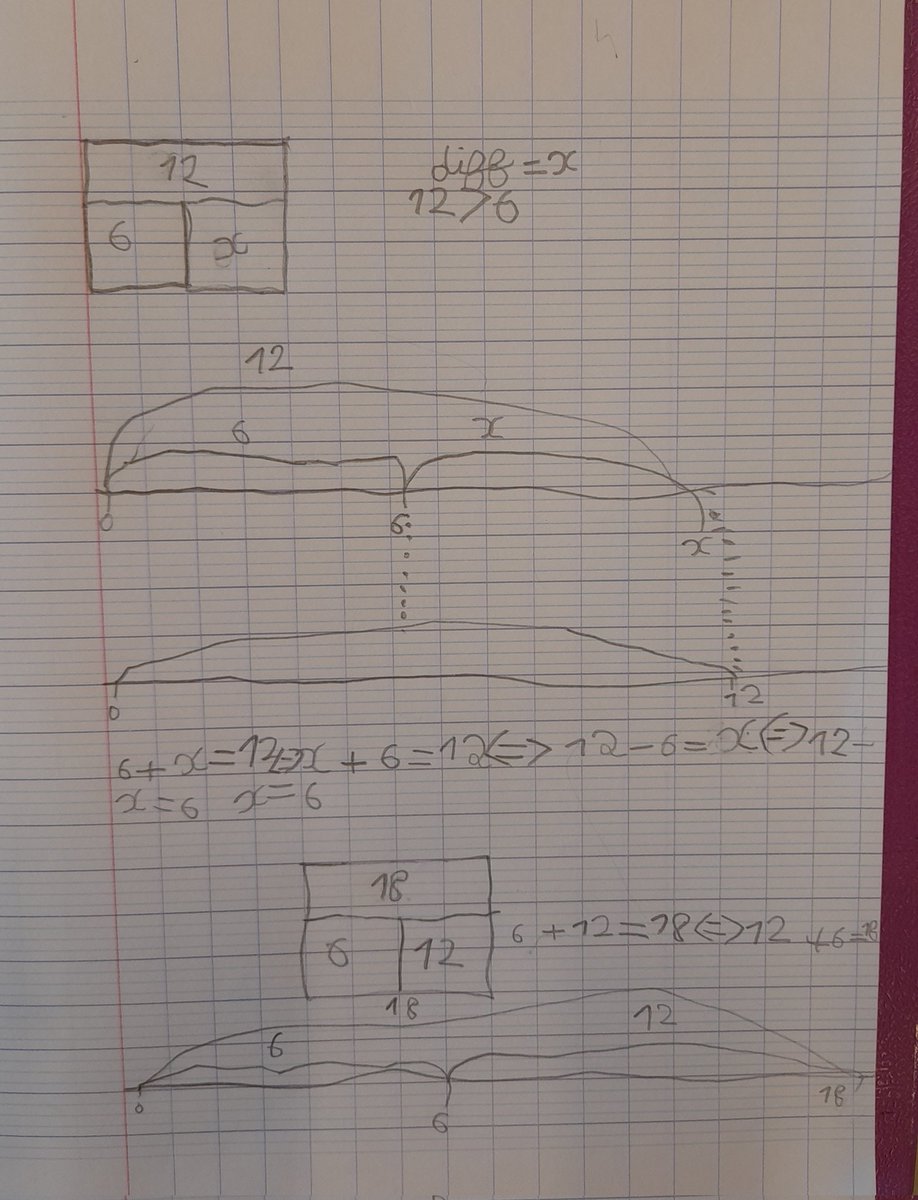 12
diff = x
12 > 6
6 x
12
6 x
0 6 x
0 12
6 + x = 12 <=> x + 6 = 12 <=> 12 - 6 = x <=> 12 -
x = 6 x = 6
18
6 12 6 + 12 = 18 <=> 12 + 6 = 18
18
6 12
0 6 18